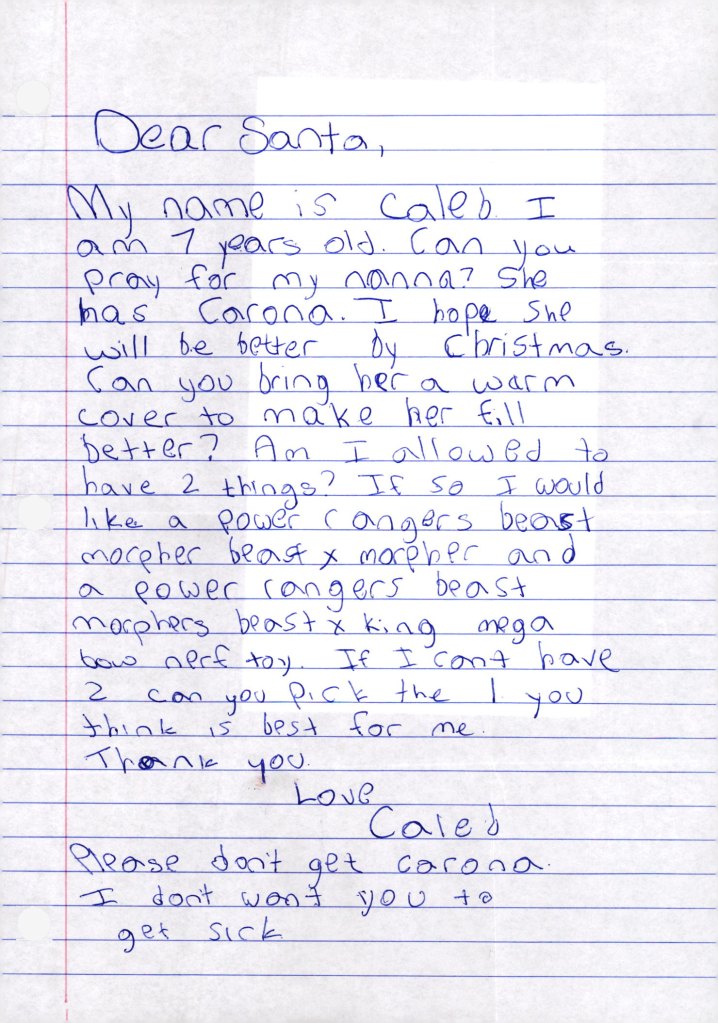 Dear Santa,
My name is Caleb I
am 7 years old. Can you
pray for my nanna? She
has Carona. I hope she
will be better by Christmas.
Can you bring her a warm
cover to make her fill
better? Am I allowed to
have 2 things? If so I would
like a power rangers beast
morpher beast x morpher and
a power rangers beast
morphers beast x king mega
bow nerf toy. If I cant have
2 can you pick the 1 you
think is best for me.
Thank you.
Love
Caleb
Please don't get carona.
I don't want you to
get sick